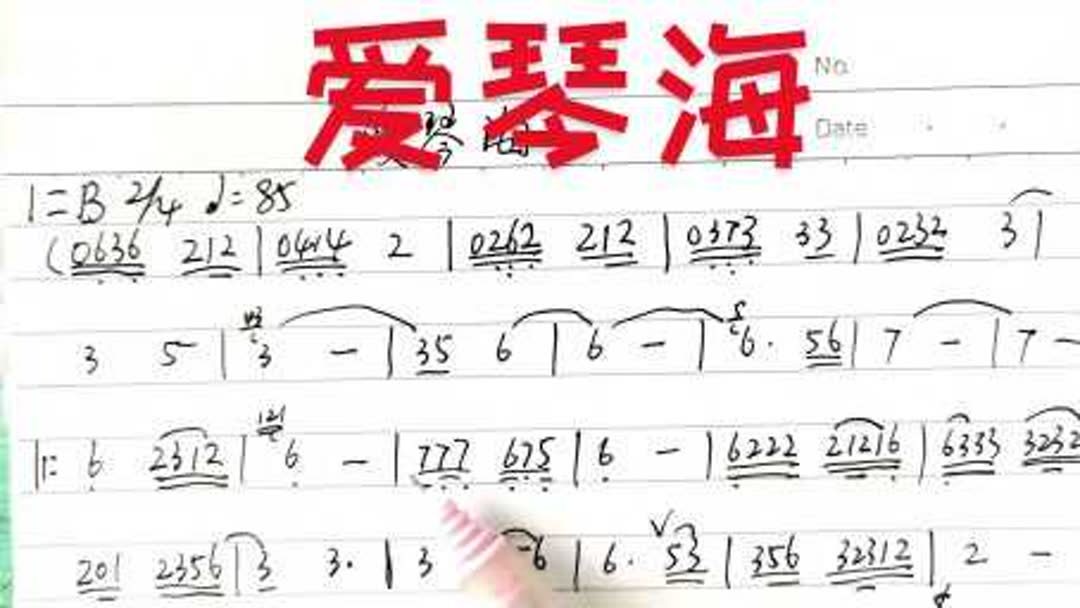 爱琴海
No.
Date
1=B 2/4 ♩=85
(0636 212 | 0414 2 | 0262 212 | 0373 33 | 0232 3 |
3 5 | 3 - | 35 6 | 6 - | 6· 56 | 7 - | 7 -
‖: 6 2312 | 121 6 - | 777 675 | 6 - | 6222 21216 | 6333 3232
201 2356 | 3 3· | 3 6 | 6· 53 | 356 32312 | 2 -